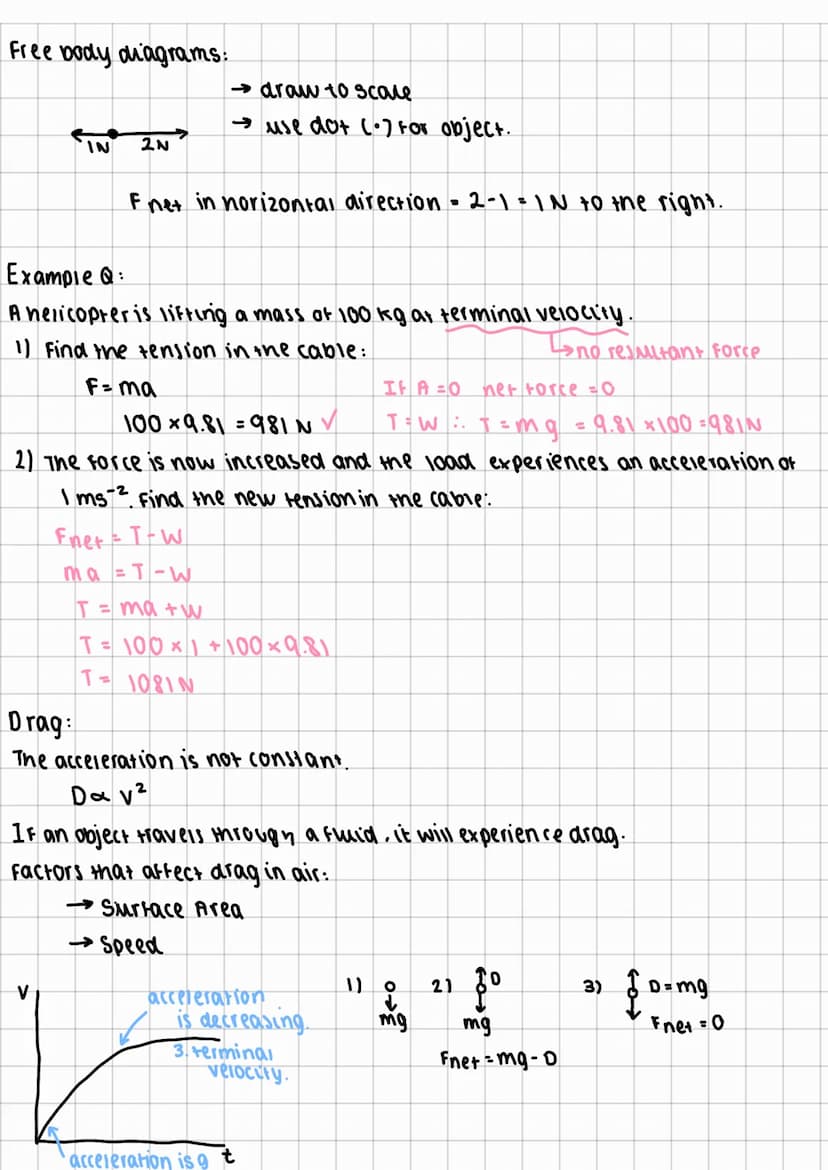 Free body diagrams:
→ draw to scale
→ use dot (•) for object.
1N 2N
F net in horizontal direction = 2-1 = 1N to the right.
Example Q:
A helicopter is lifting a mass of 100 kg at terminal velocity.
1) Find the tension in the cable:
↳ no resultant force
F = ma
If A = 0 net force = 0
100 × 9.81 = 981 N ✓
T = W ∴ T = mg = 9.81 × 100 = 981N
2) The force is now increased and the load experiences an acceleration of
1 ms⁻². Find the new tension in the cable:
Fnet = T - W
ma = T - W
T = ma + W
T = 100 × 1 + 100 × 9.81
T = 1081N
Drag:
The acceleration is not constant.
D ∝ v²
If an object travels through a fluid, it will experience drag.
Factors that affect drag in air:
→ Surface Area
→ Speed
V
acceleration
is decreasing.
3. terminal
velocity.
acceleration is g
t
1)
mg
2)
D
mg
Fnet = mg - D
3)
D = mg
Fnet = 0